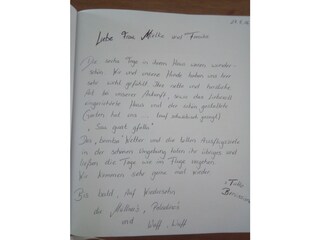 Liebe Frau Melka und Familie
Die sechs Tage in Ihrem Haus waren wunder-
schön. Wir und unsere Hunde haben uns hier
sehr wohl gefühlt. Ihre nette und herzliche
Art bei unserer Ankunft, sowie das liebevoll
eingerichtete Haus und der schön gestaltete
Garten hat uns
" Sau guat gfalln "
Das Wetter und die tollen Ausflugsziele
in der schönen Umgebung taten ihr übriges und
ließen die Tage wie im Fluge vergehen.
Wir kommen sehr gerne mal wieder
Bis bald, Auf Wiedersehn
die
und Wuff, Wuff